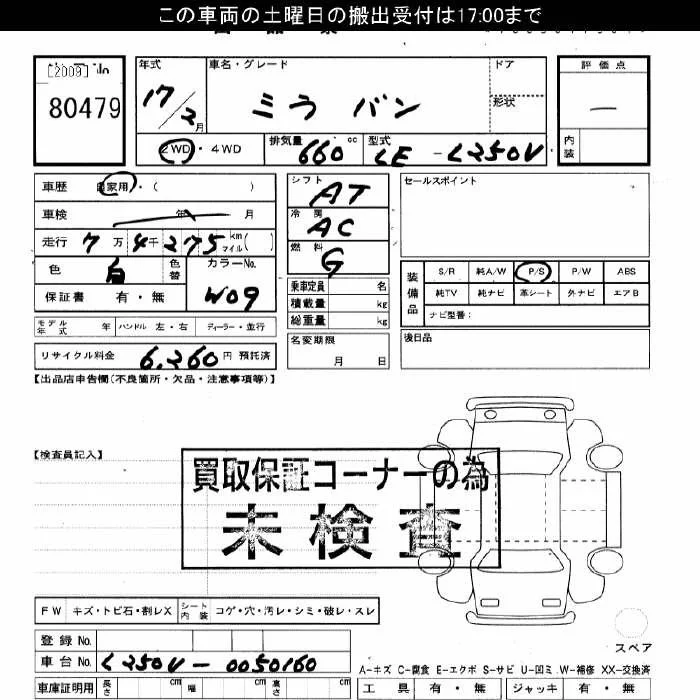 この車両の土曜日の搬出受付は17:00まで
[2009]
80479
年式 17/2月
車名・グレード ミラ バン
ドア
形状
評価点 —
内装
2WD・4WD
排気量 660 cc
型式 LE-L250V
車歴 自家用・( )
車検 年 月
走行 7万4千275 km マイル( )
色 白 色替
カラーNo. W09
保証書 有・無
シフト AT
冷房 AC
燃料 G
乗車定員 名
積載量 kg
総重量 kg
名変期限 月 日
セールスポイント
装備品
S/R 純A/W P/S P/W ABS
純TV 純ナビ 革シート 外ナビ エアB
ナビ型番:
後日品
モデル年式 年 ハンドル 左・右 ディーラー・並行
リサイクル料金 6,260円 預託済
【出品店申告欄(不良箇所・欠品・注意事項等)】
【検査員記入】
買取保証コーナーの為
未検査
FW キズ・トビ石・割レX シート内装 コゲ・穴・汚レ・シミ・破レ・スレ
登録No.
車台No. L250V-0050160
スペア
A-キズ C-腐食 E-エクボ S-サビ U-凹ミ W-補修 XX-交換済
車庫証明用 長さ cm 幅 cm 高さ cm
工具 有・無 ジャッキ 有・無